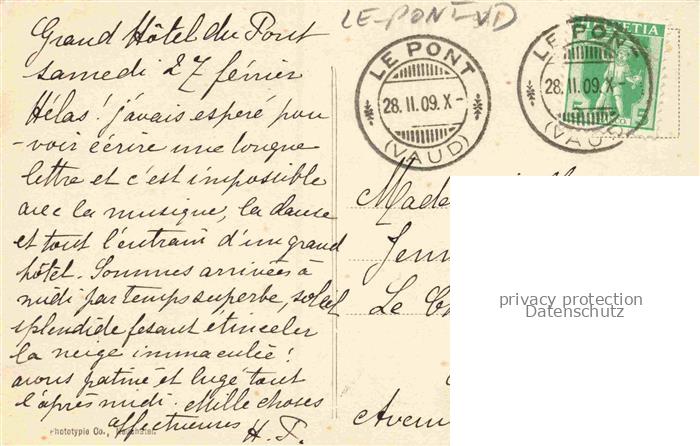 Grand Hôtel du Pont
samedi 27 février
Hélas! j'avais espéré pou
-voir écrire une longue
lettre et c'est impossible
avec la musique, la danse
et tout l'entrain d'un grand
hôtel. Sommes arrivées à
midi par temps superbe, soleil
splendide fesant étinceler
la neige immaculée!
avons patiné et lugé tout
l'après midi. Mille choses
affectueuses H. F.
Phototypie Co., Neuchâtel
LE-PONT-VD
LE PONT
28. II. 09. X-
(VAUD)
HELVETIA
5 5
LE PONT
28. II. 09. X-
(VAUD)
Made
Jenn
Le Ch
Avenu
privacy protection
Datenschutz